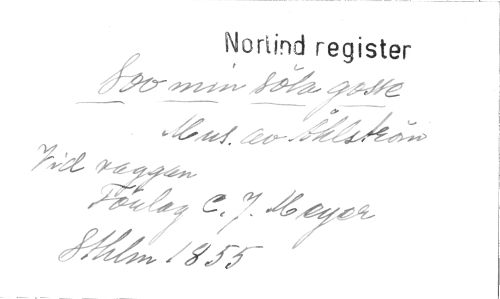 Norlind register
Sov min söta gosse
Mus. av Åhlström
Vid vaggan
Förlag C. J. Meyer
Sthlm 1855